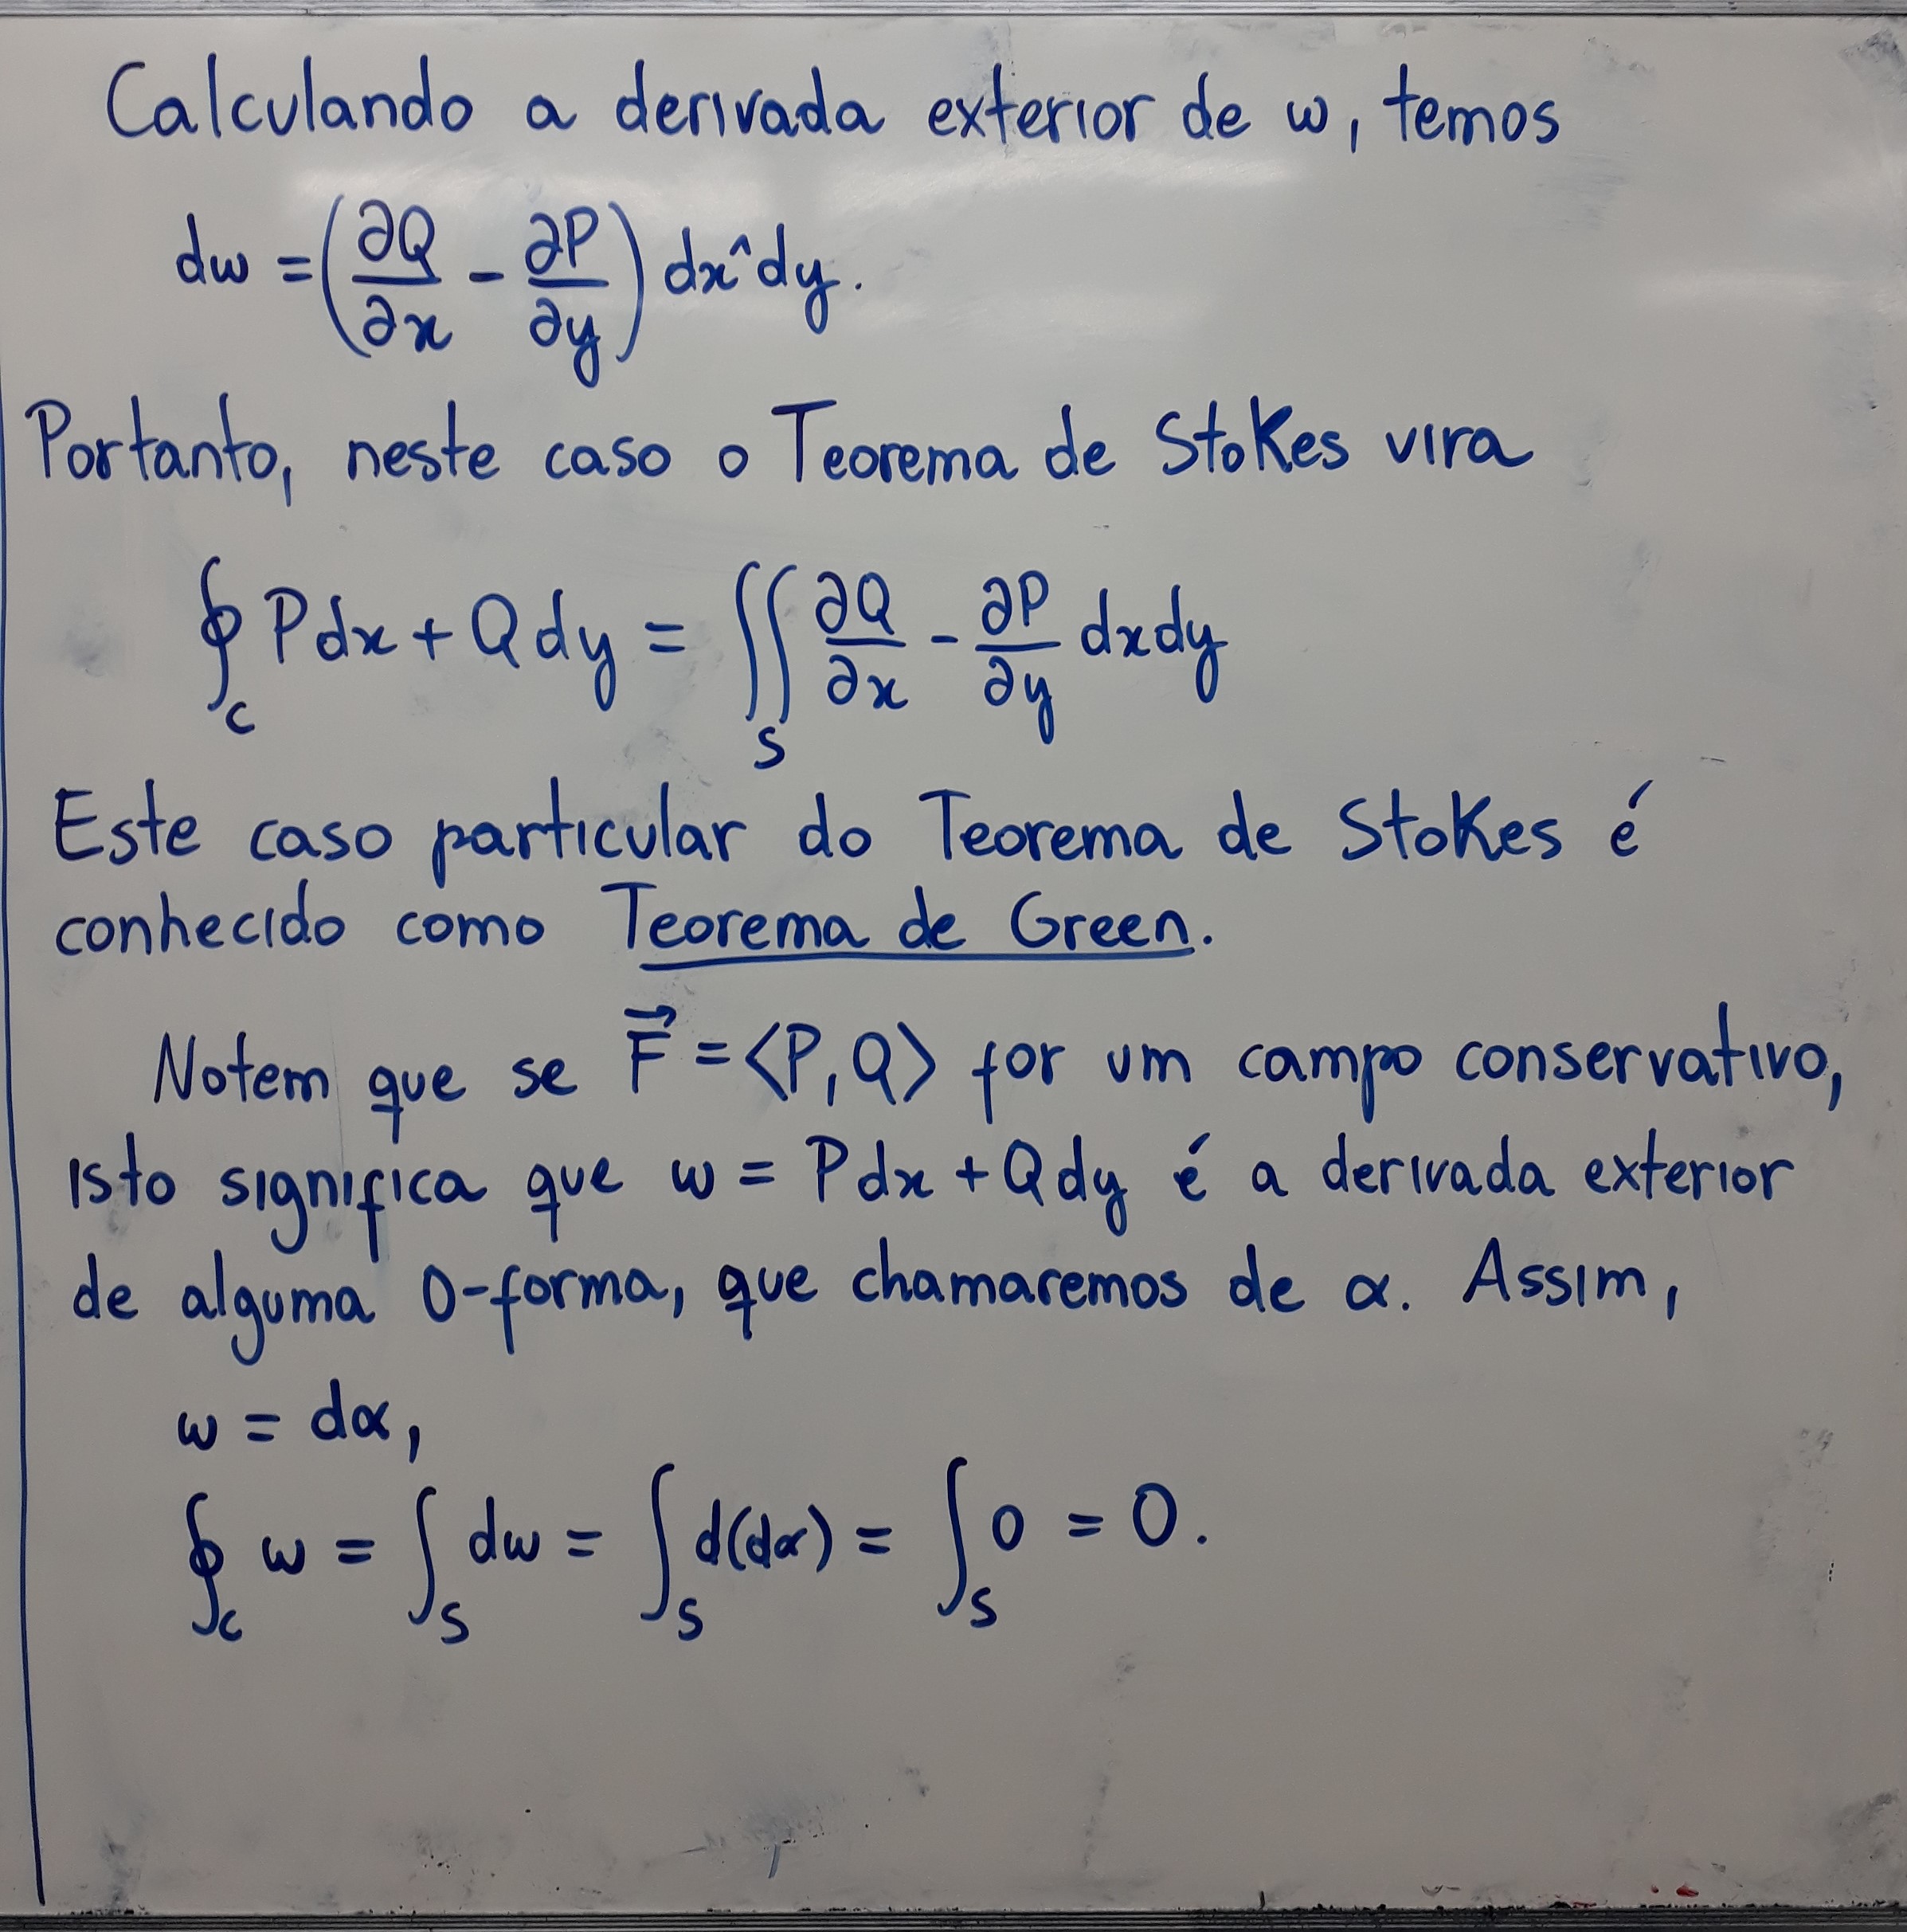 Calculando a derivada exterior de ω, temos
dω = (∂Q/∂x - ∂P/∂y) dx^dy.
Portanto, neste caso o Teorema de Stokes vira
∮_C Pdx + Qdy = ∬_S ∂Q/∂x - ∂P/∂y dxdy
Este caso particular do Teorema de Stokes é
conhecido como Teorema de Green.
Notem que se F⃗ = ⟨P, Q⟩ for um campo conservativo,
isto significa que ω = Pdx + Qdy é a derivada exterior
de alguma 0-forma, que chamaremos de α. Assim,
ω = dα,
∮_C ω = ∫_S dω = ∫_S d(dα) = ∫_S 0 = 0.